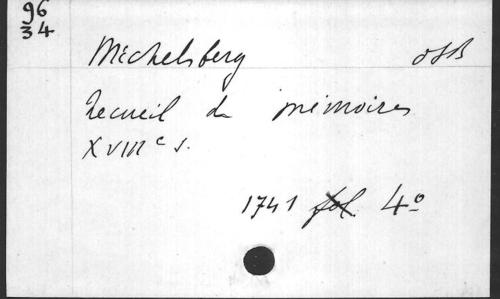 96
34
Michelsberg OSB
Recueil de mémoires
XVIIIe s.
1741 fol. 4o